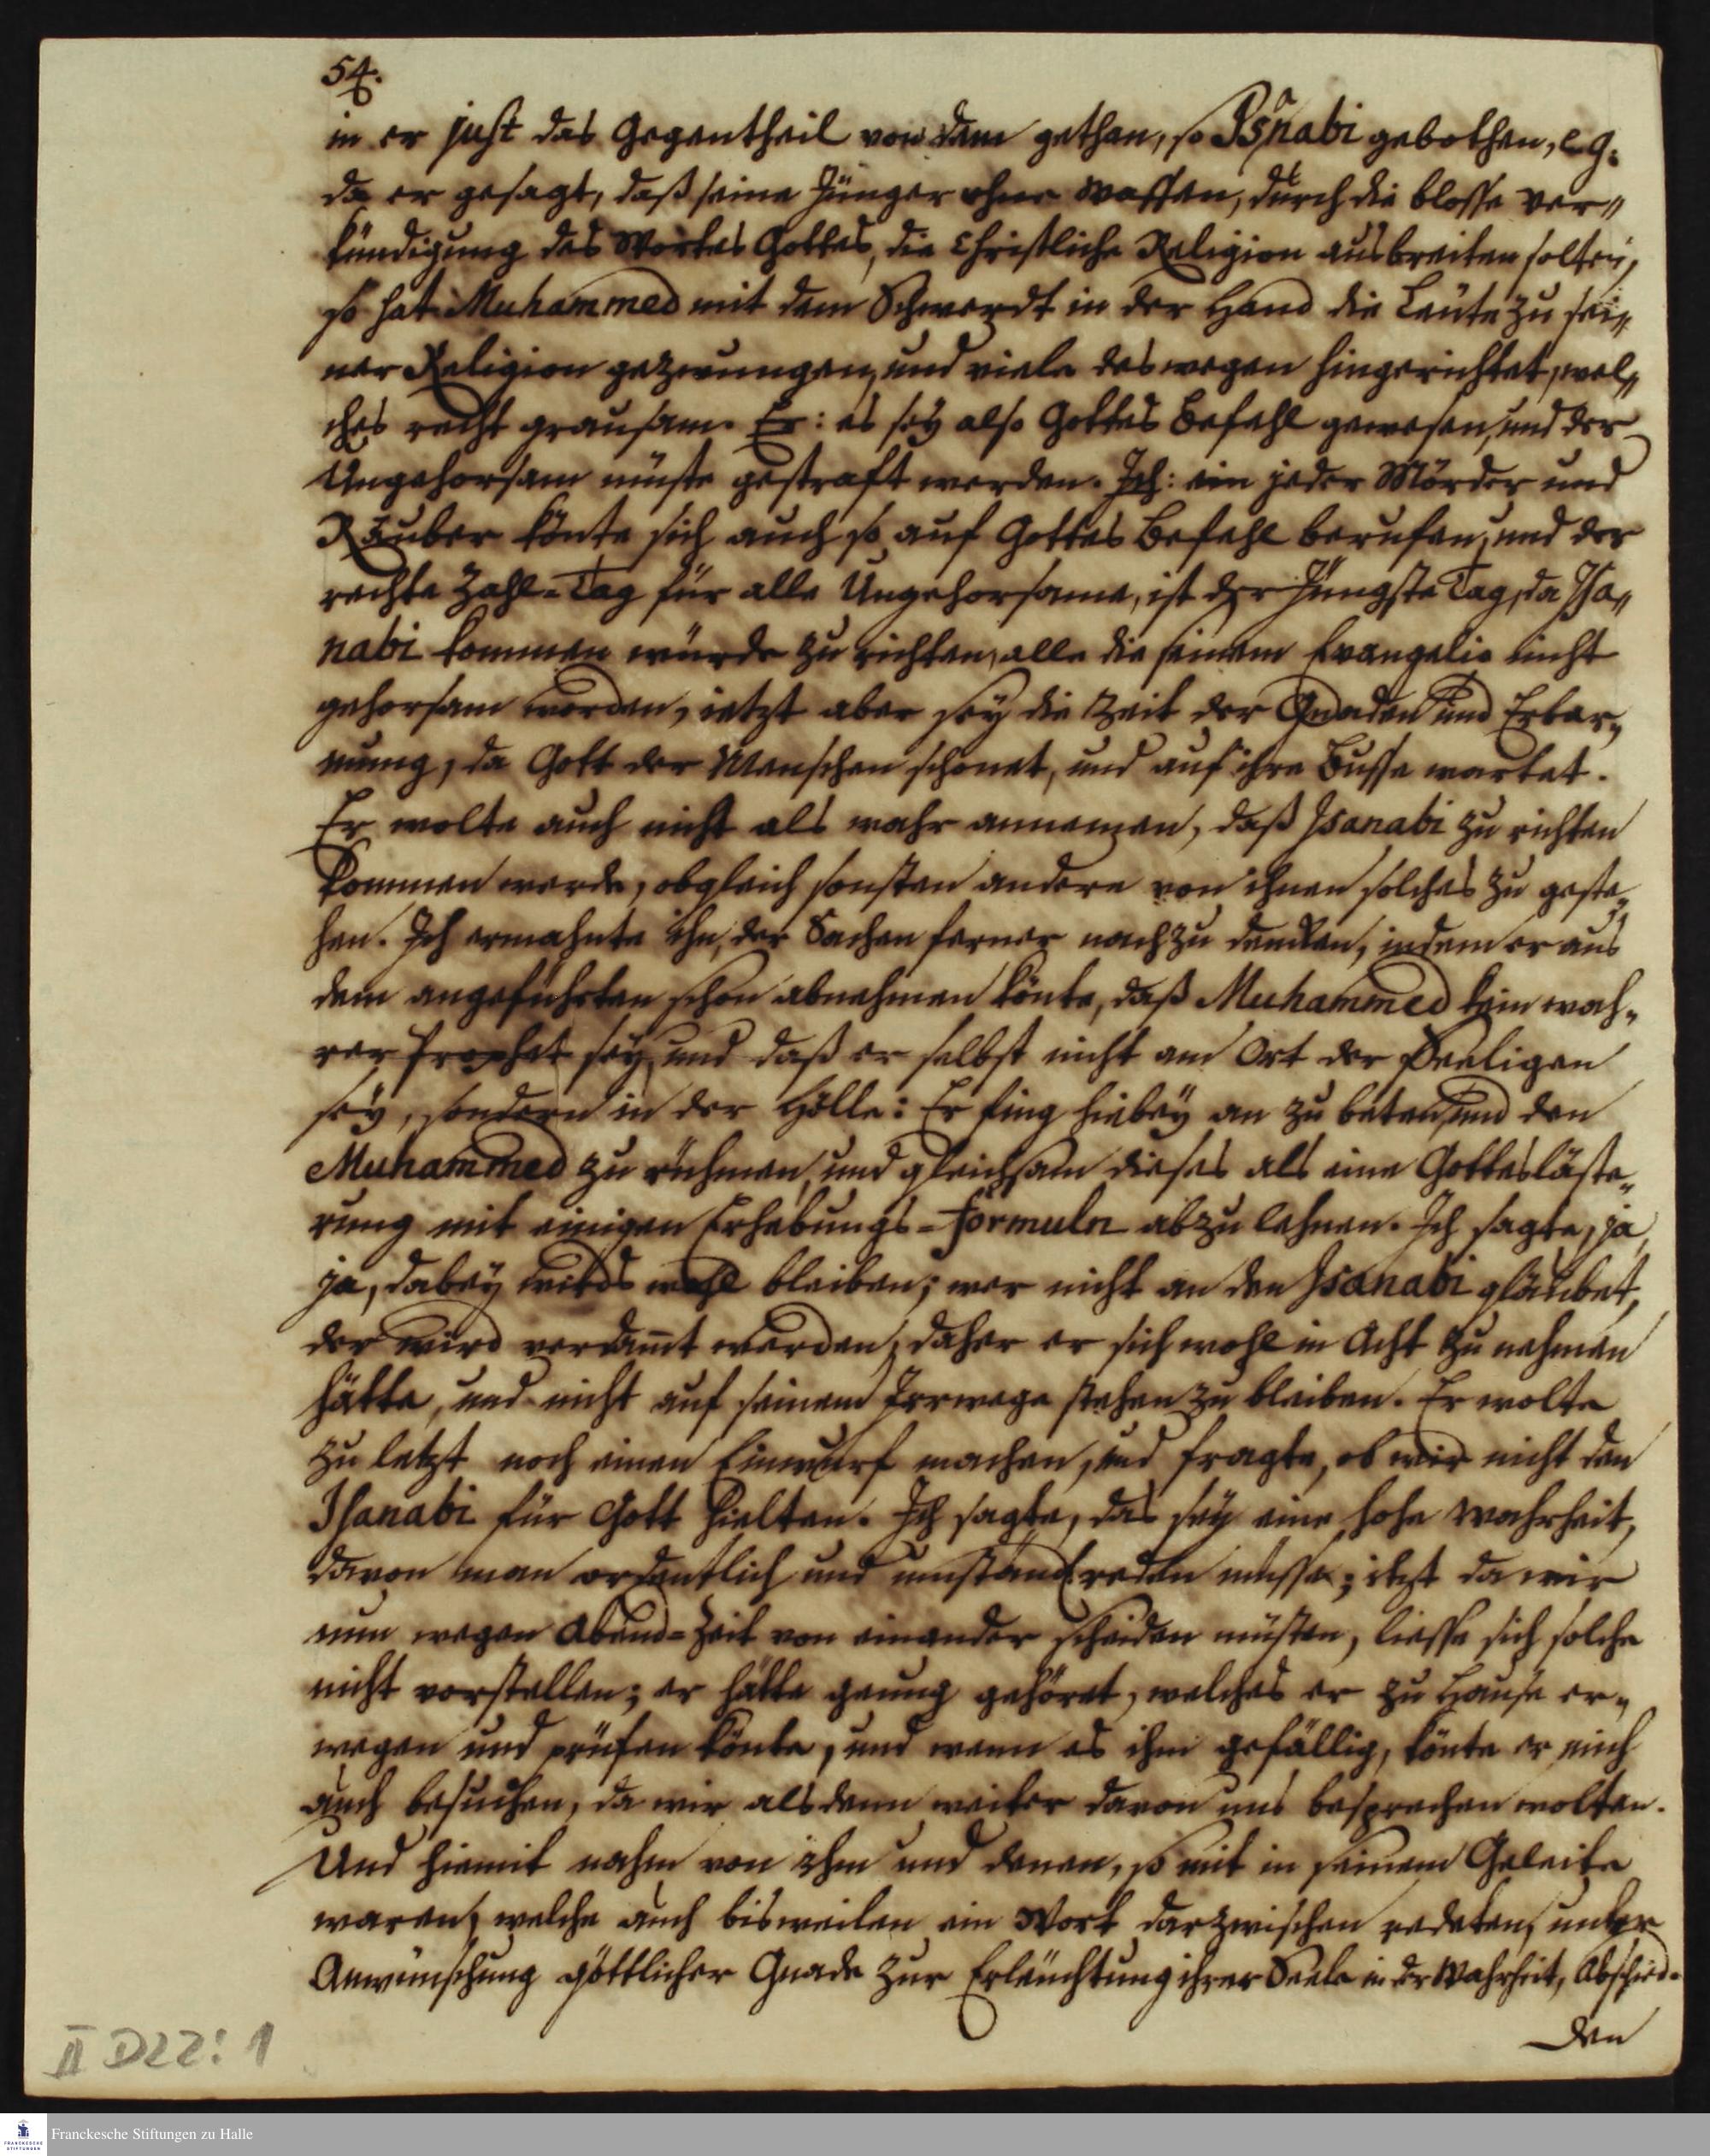 54.
in er just das Gegentheil von dem gethan, so Isanabi gebothen, e.g.
da er gesagt, daß seine Jünger ohne Waffen, durch die blosse Ver„
kündigung des Wortes Gottes, die Christliche Religion ausbreiten solten,
so hat Muhammed mit dem Schwerdt in der Hand die Leute zu sei„
ner Religion gezwungen, und viele deswegen hingerichtet, wel„
ches recht grausam. Er: es sey also Gottes Befehl gewesen, und der
Ungehorsam müste gestraft werden. Ich: ein jeder Mörder und
Räuber könte sich auch so auf Gottes Befehl berufen, und der
rechte Zahl-Tag für alle Ungehorsame, ist der Jüngste Tag, da Isa„
nabi kommen würde zu richten, alle die seinem Evangelio nicht
gehorsam worden, ietzt aber sey die Zeit der Gnaden und Erbar„
mung, da Gott der Menschen schonet, und auf ihre Busse wartet.
Er wolte auch nicht als wahr annemen, daß Isanabi zu richten
kommen werde, obgleich sonsten andere von ihnen solches zu geste„
hen. Ich ermahnte ihn, der Sachen ferner nachzu dencken, indem er aus
dem angeführten schon abnehmen könte, daß Muhammed kein wah„
rer Prophet sey, und daß er selbst nicht am Ort der Seeligen
sey, sondern in der Hölle: Er fing hiebey an zu beten, und den
Muhammed zu rühmen, und gleichsam dieses als eine Gottesläste„
rung mit einigen Erhebungs-Formuln abzulehnen. Ich sagte, ja,
ja, dabey wirds wohl bleiben; wer nicht an den Isanabi gläubet,
der wird verdamt werden; daher er sich wohl in Acht zu nehmen
hätte, und nicht auf seinem Irrwege stehen zu bleiben. Er wolte
zu letzt noch einen Einwurf machen, und fragte, ob wir nicht den
Isanabi für Gott hielten. Ich sagte, das sey eine hohe Wahrheit,
davon man ordentlich und umständl. reden müsse; itzt da wir
nun wegen Abend-Zeit von einander scheiden müsten, liesse sich solche
nicht vorstellen; er hätte genug gehöret, welches er zu Hause er„
wegen und prüfen könte, und wenn es ihm gefällig, könte er mich
auch besuchen, da wir alsdenn weiter davon uns besprechen wolten.
Und hiemit nahm von ihm und denen, so mit in seinem Geleite
waren, welche auch bisweilen ein Wort darzwischen redeten, unter
Anwünschung göttlicher Gnade zur Erleuchtung ihrer Seele in der Wahrheit, Abschied.
Den
II D22: 1
Franckesche Stiftungen zu Halle
FRANCKESCHE STIFTUNGEN